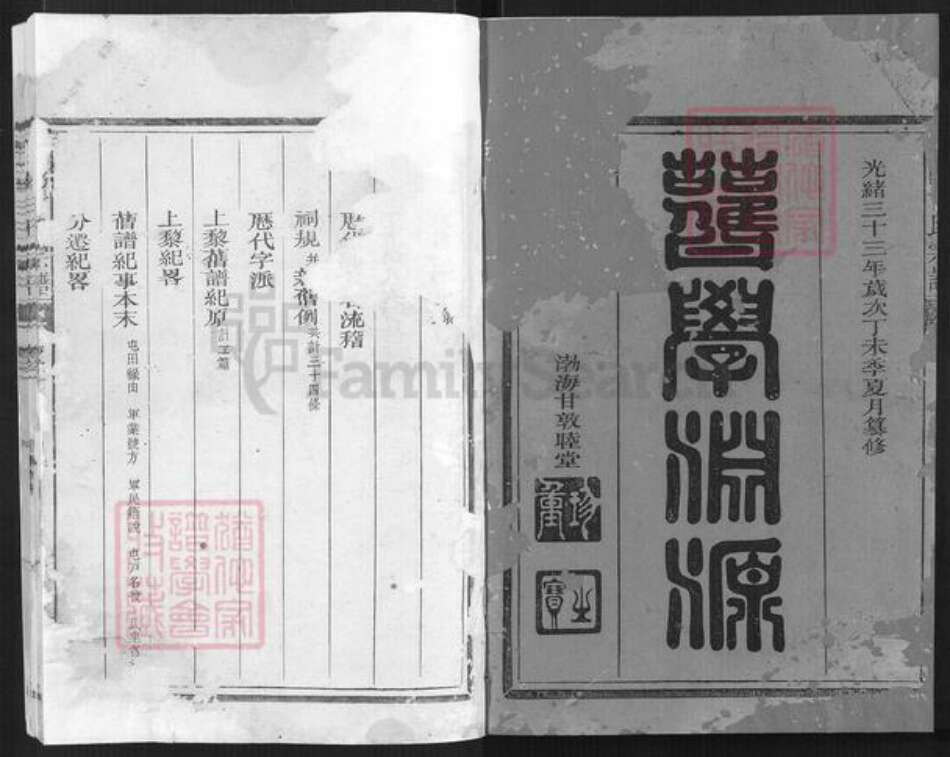 光緒三十三年歲次丁未季夏月纂修
舊學淵源
渤海甘敦睦堂
珍重
之寶
歷代 流稽
祠規 舊例 共計三十四條
歷代字派
上黎舊譜紀原 計三篇
上黎紀畧
舊譜紀事本末 屯田緣由 軍業號方 軍民籍說 屯戶名
分遷紀畧
猶他家譜學會
FamilySearch